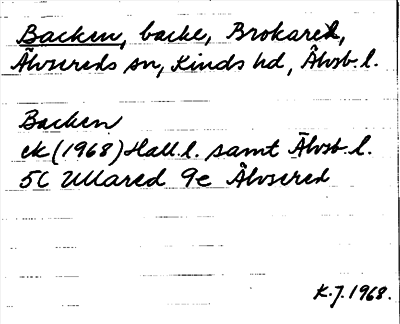 Backen, backe, Brokared,
Älvsereds sn, Kinds hd, Älvsb. l.
Backen
ek (1968) Hall. l. samt Älvsb. l.
5C Ullared 9e Älvsered
K.J. 1968.